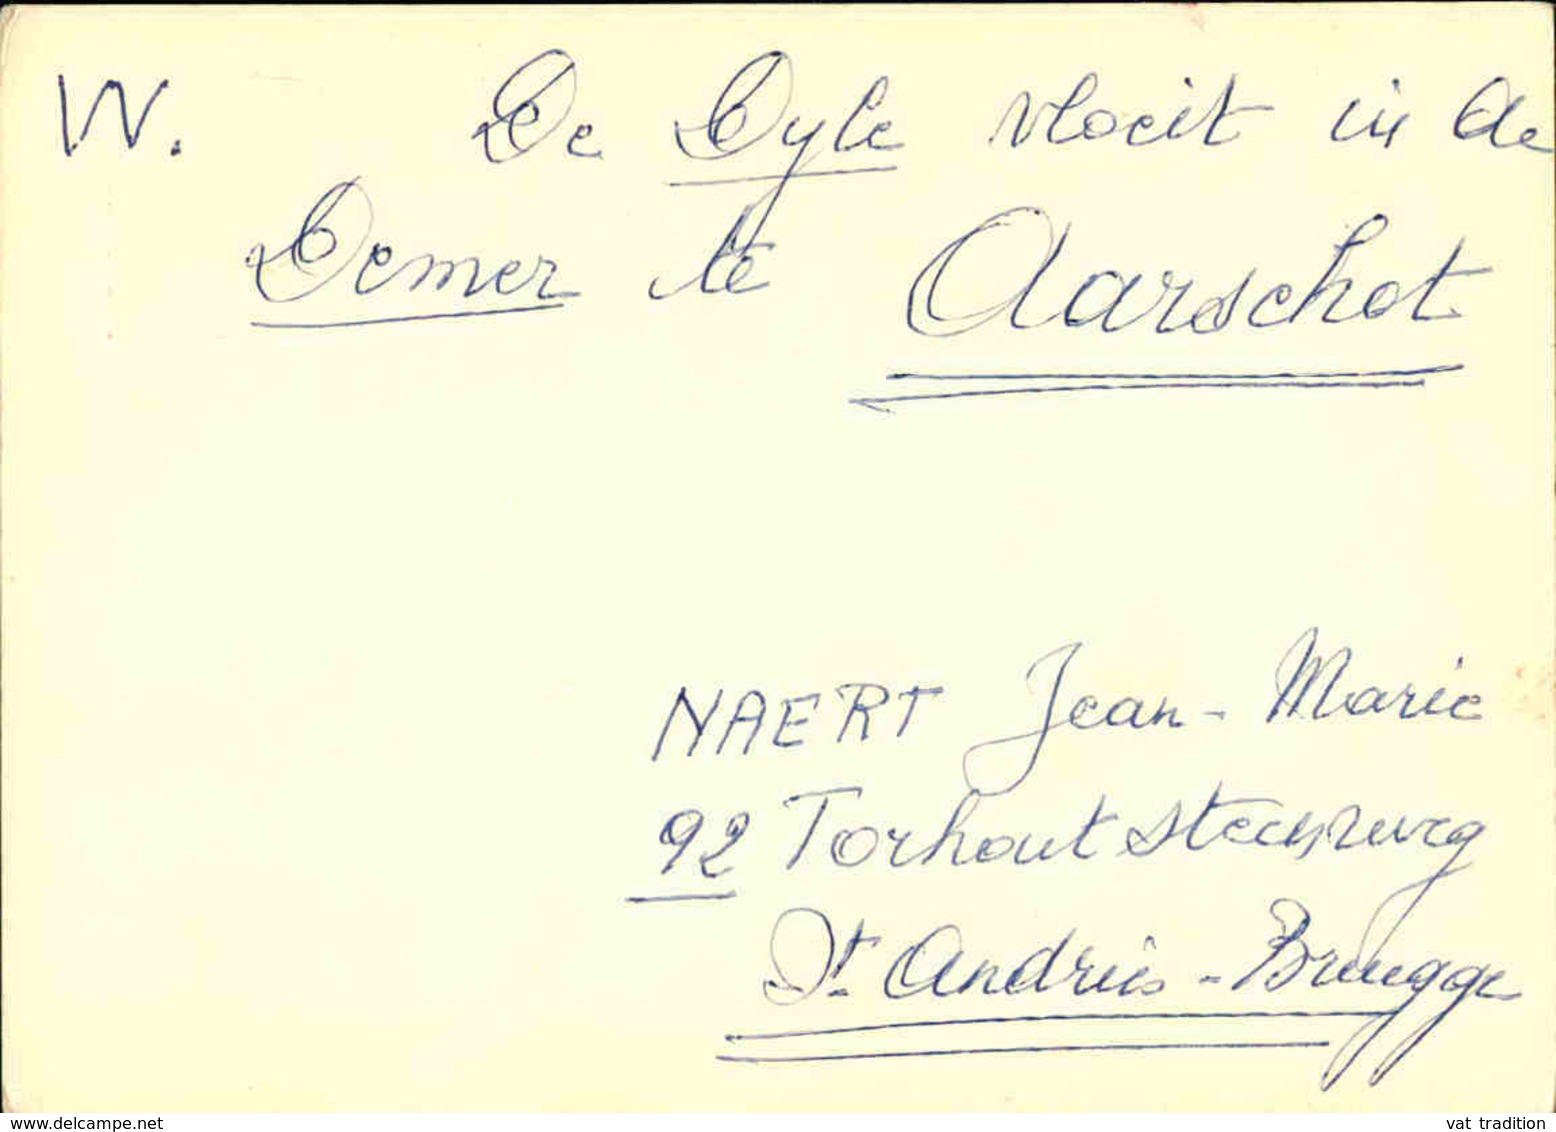 W. De Dyle vloeit in de
Demer te Aarschot
NAERT Jean-Marie
92 Torhout steenweg
St. Andries - Brugge
www.delcampe.net
vat tradition